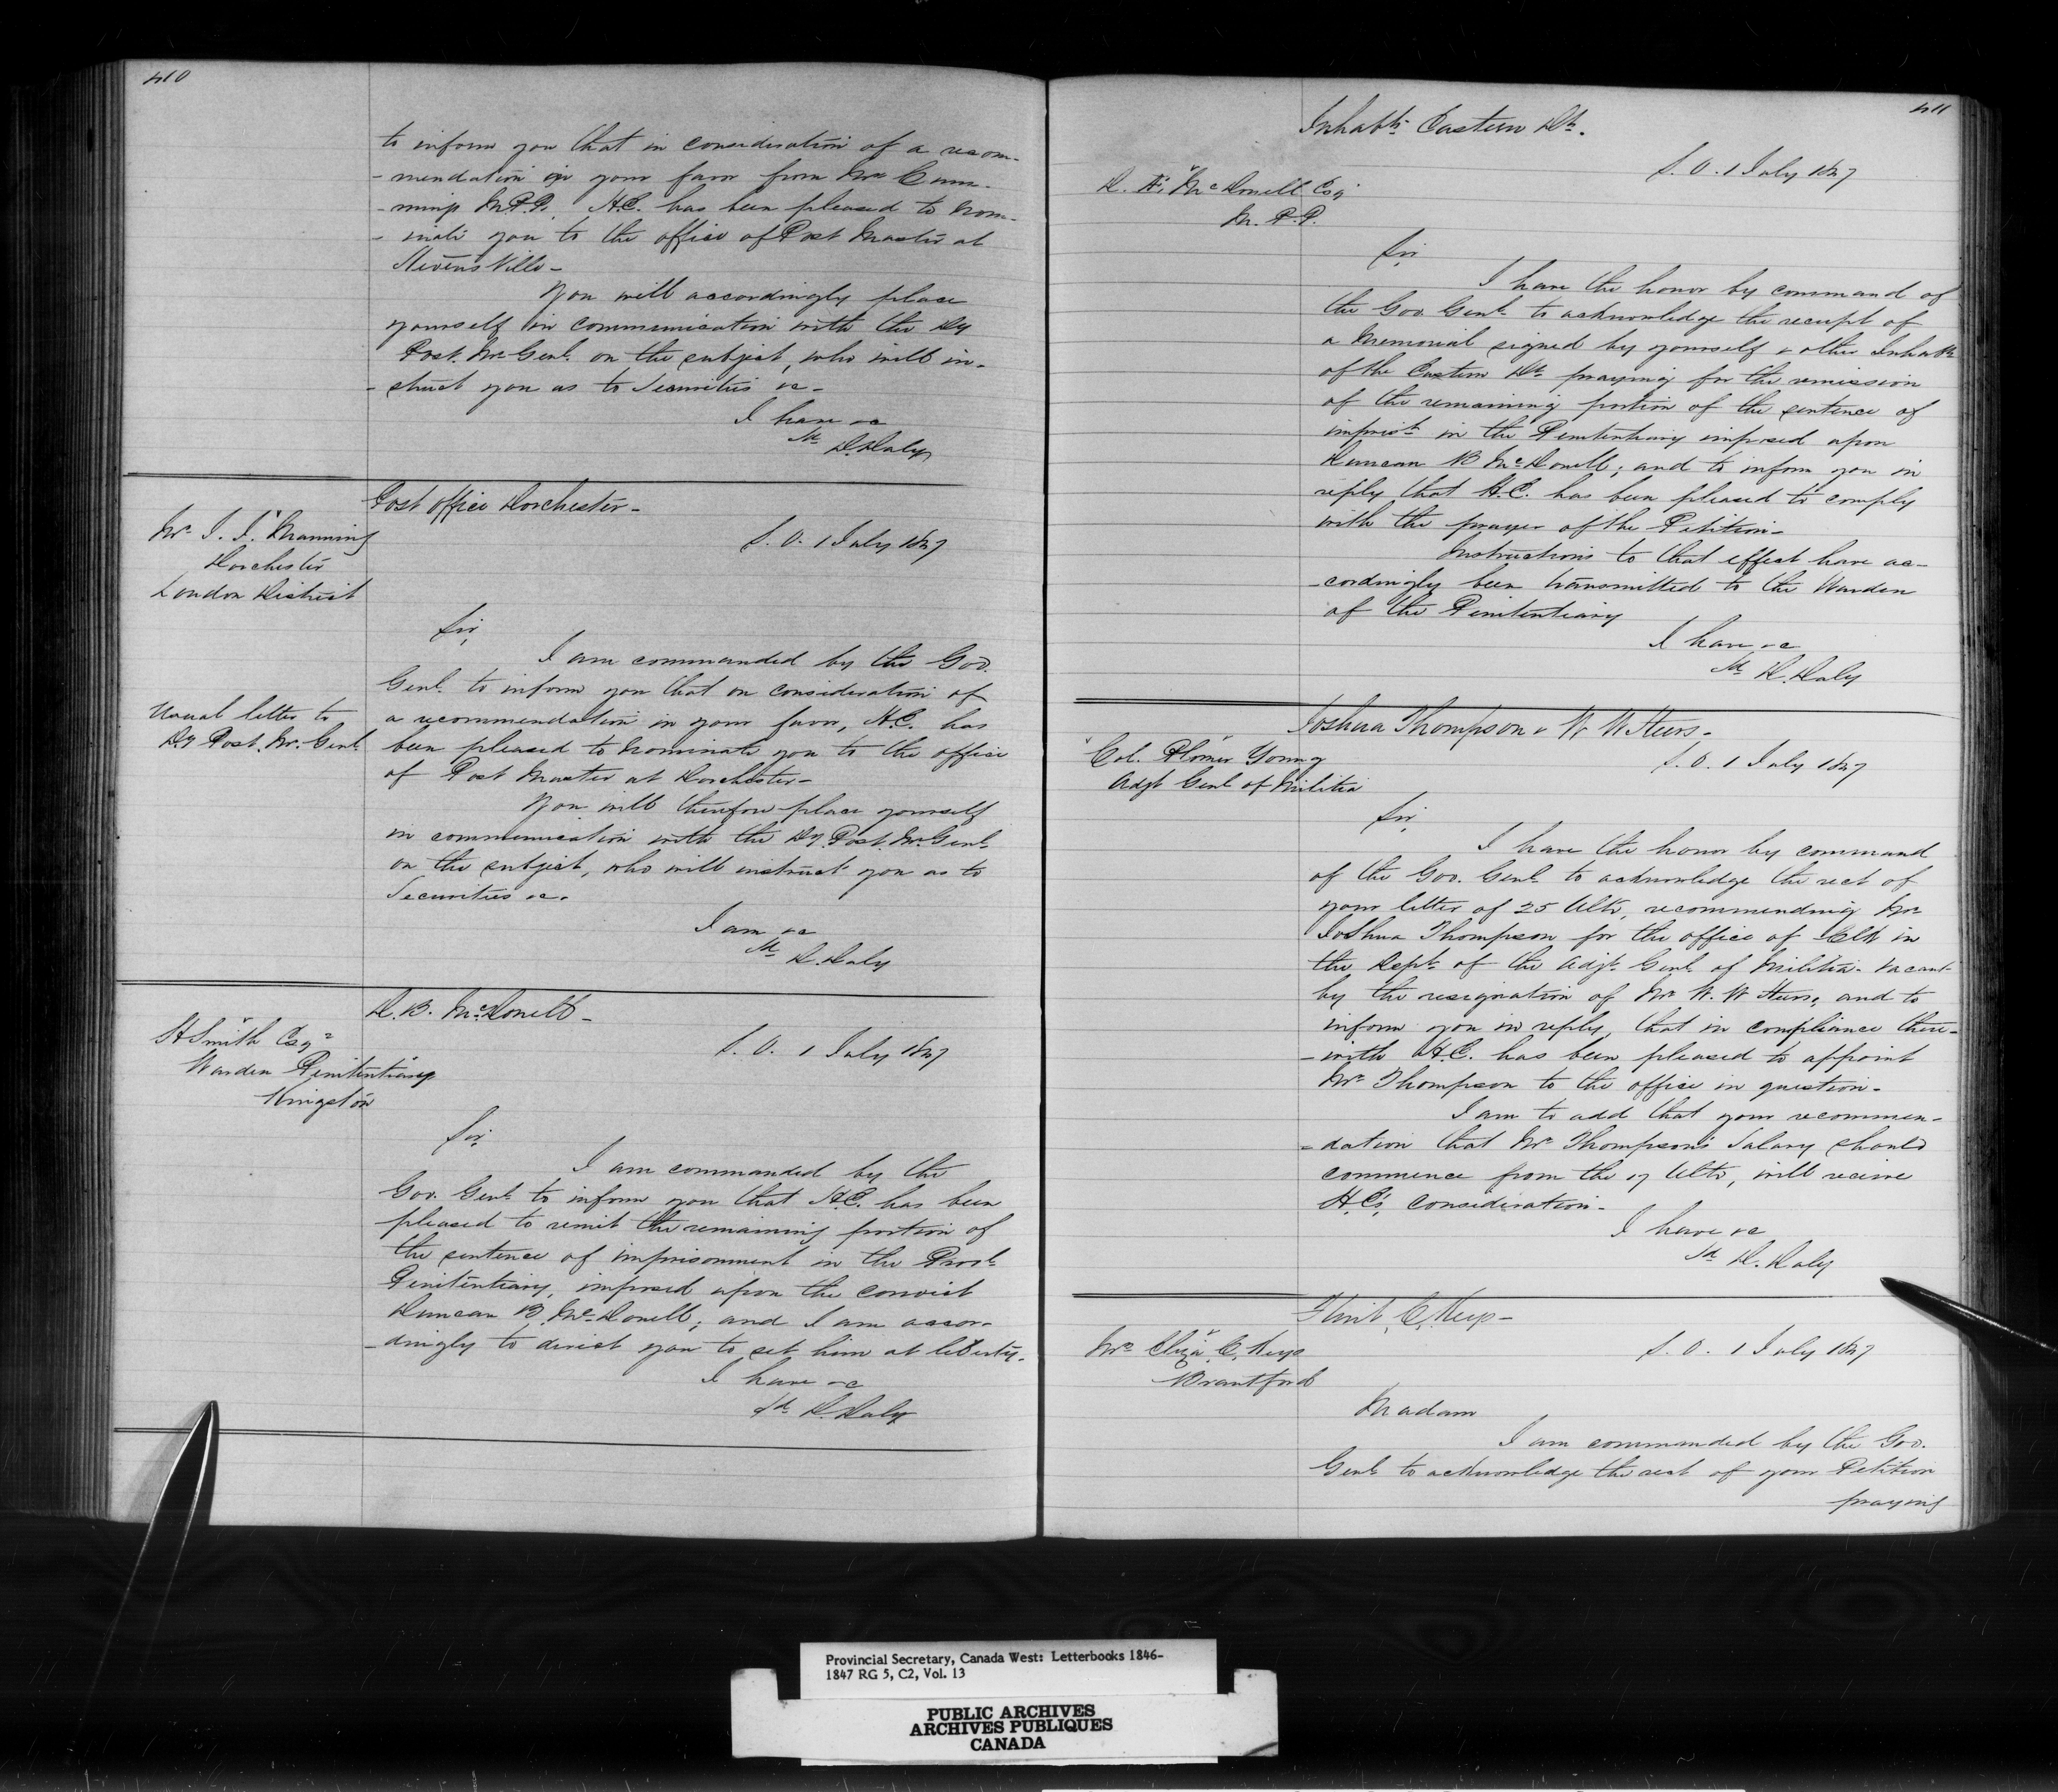 410
to inform you that in consideration of a recom-
-mendation in your favor from Mr Cum-
-mings M.P.P. H.E. has been pleased to nom-
-inate you to the office of Post Master at
Stevensville-
You will accordingly place
yourself in communication with the Dy
Post. Mr. Genl. on the subject, who will in-
-struct you as to Securities &c-
I have &c
Sd D. Daly
Post office Dorchester-
Mr I. I. Manning
Dorchester
London District
S. O. 1 July 1847
Sir,
I am commanded by the Gov.
Genl. to inform you that on consideration of
a recommendation in your favor, H.E. has
been pleased to nominate you to the office
of Post Master at Dorchester-
Usual letter to
Dy Post. Mr. Genl.
You will therefore place yourself
in communication with the Dy. Post. Mr. Genl.
on the subject, who will instruct you as to
Securities &c.
I am &c
Sd D. Daly
D. B. McDonell-
H Smith Esqr
Warden Penitentiary
Kingston
S. O. 1 July 1847
Sir,
I am commanded by the
Gov. Genl. to inform you that H.E. has been
pleased to remit the remaining portion of
the sentence of imprisonment in the Provl.
Penitentiary, imposed upon the convict
Duncan B. McDonell; and I am accor-
-dingly to direct you to set him at liberty.
I have &c
Sd D. Daly
411
Inhabts. Eastern Dt.
S. O. 1 July 1847
D. Æ. McDonell Esq
M. P. P.
Sir
I have the honor by command of
the Gov. Genl. to acknowledge the receipt of
a Memorial signed by yourself & other Inhabts
of the Eastern Dt. praying for the remission
of the remaining portion of the sentence of
imprist. in the Penitentiary imposed upon
Duncan B McDonell; and to inform you in
reply that H.E. has been pleased to comply
with the prayer of the Petition-
Instructions to that effect have ac-
-cordingly been transmitted to the Warden
of the Penitentiary
I have &c
Sd D. Daly
Joshua Thompson & W W
Col. Plomer Young
Adjt Genl of Militia
S. O. 1 July 1847
Sir,
I have the honor by command
of the Gov. Genl. to acknowledge the rect of
your letter of 25 Ulto, recommending Mr
Joshua Thompson for the office of Clk in
the Dept. of the Adjt. Genl. of Militia. vacant
by the resignation of Mr W. W and to
inform you in reply, that in compliance there-
-with H.E. has been pleased to appoint
Mr Thompson to the office in question-
I am to add that your recommen-
-dation that Mr Thompson's Salary should
commence from the 17 Ulto, will receive
H.E's. consideration-
I have &c
Sd D. Daly
E.
S. O. 1 July 1847
Mrs Eliza E.
Brantford
Madam
I am commanded by the Gov.
Genl. to acknowledge the rect of your Petition
praying
Provincial Secretary, Canada West: Letterbooks 1846-
1847 RG 5, C2, Vol. 13
PUBLIC ARCHIVES
ARCHIVES PUBLIQUES
CANADA